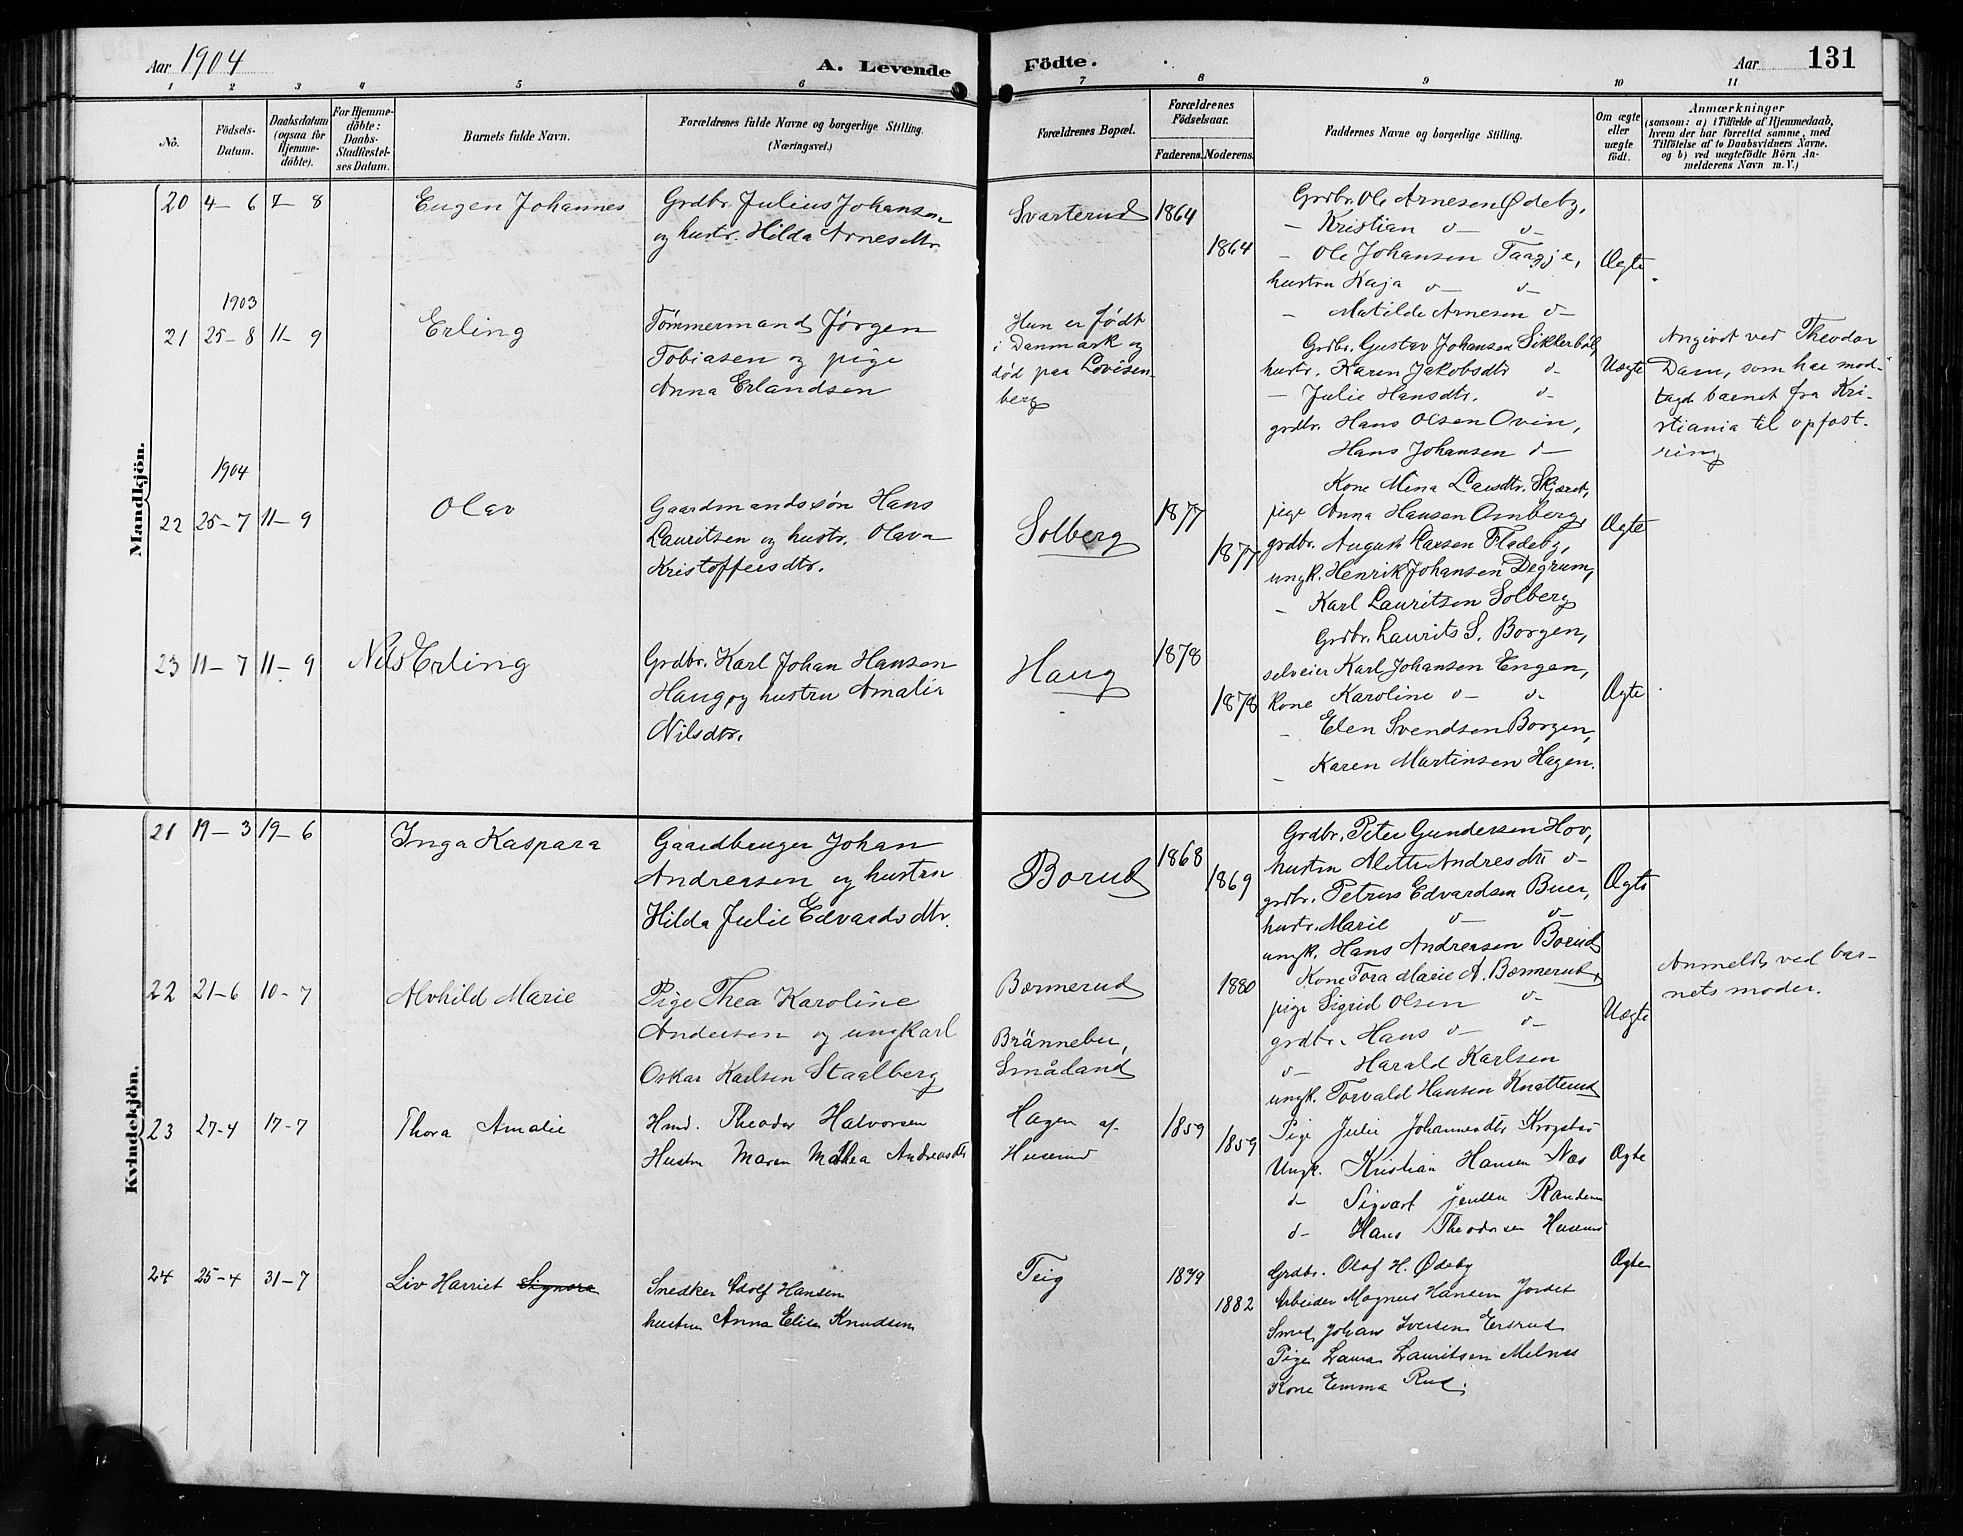 Aar 1904
A. Levende
Födte.
Aar
131
1 2 3 4 5 6 7 8 9 10 11
No.
Födsels-
Datum.
Daabsdatum
(ogsaa for
Hjemme-
döbte).
For Hjemme-
döbte:
Daabs-
Stadfæstel-
ses Datum.
Barnets fulde Navn.
Forældrenes fulde Navne og borgerlige Stilling.
(Næringsvei.)
Forældrenes Bopæl.
Forældrenes
Födselsaar.
Faderens. Moderens.
Faddernes Navne og borgerlige Stilling.
Om ægte
eller
uægte
födt.
Anmærkninger
(saasom: a) i Tilfælde af Hjemmedaab,
hvem der har forrettet samme, med
Tilföielse af to Daabsvidners Navne.
og b) ved uægtefödte Börn An-
melderens Navn m. V.)
Mandkjön.
20 4–6 7–8 Eugen Johannes
Grdbr. Julius Johansen
og hustr. Hilda Arnesdtr.
Svarterud 1864
1864
Grdbr. Ole Arnesen Ødeby,
– Kristian d– d–
– Ole Johansen Taagje,
hustru Kaja d– d–
– Matilde Arnesen d–
Ægte.
1903
21 25–8 11–9 Erling
Tømmermand Jørgen
Tobiasen og pige
Anna Erlandsen
Hun er født
i Danmark og
død paa Lovisen-
berg
Grdbr. Gustav Johansen Sikkerbøl,
hustr. Karen Jakobsdtr d–
– Julie Hansdtr. d–
grdbr. Hans Olsen Ovin,
Hans Johansen d–
Uægte
Angivet ved Theodor
Dam, som har mod-
taget barnet fra Kri-
stiania til opfost-
ring
1904
22 25–7 11–9 Olav
Gaardmandssøn Hans
Lauritsen og hustr. Olava
Kristoffersdtr.
Solberg 1877
1877
Kone Mina Larsdtr. Skjæret,
pige Anna Hansen Omberg,
grdbr. August Larsen Fladeby,
ungk. Henrik Johansen Degrum,
– Karl Lauritsen Solberg
Ægte
23 11–7 11–9 Nils Erling
Grdbr. Karl Johan Hansen
Haug, og hustru Amalie
Nilsdtr.
Haug 1878
1878
Grdbr. Laurits S. Borgen,
selveier Karl Johansen Engen,
Kone Karoline d– d–
– Elen Svendsen Borgen,
– Karen Martinsen Hagen.
Ægte
Kvindekjön.
21 19–3 19–6 Inga Kaspara
Gaardbruger Johan
Andreasen og hustru
Hilda Julie Edvardsdtr.
Borud 1868
1869
Grdbr. Peter Gundersen Hov,
hustru Mette Andresdtr d–
grdbr. Petrus Edvardsen Buer,
hustr. Marie d– d–
ungk. Hans Andreasen Borud
Ægte
22 21–6 10–7 Alvhild Marie
Pige Thea Karoline
Andersen og ungkarl
Oskar Karlsen Staalberg
Bærmerud
Brännebu,
Småland
1880
Kone Tora Marie A. Bærmerud,
pige Sigrid Olsen d–
grdbr. Hans d– d–
d– Harald Karlsen
ungk. Torvald Hansen Knatterud
Uægte
Anmeldt ved bar-
nets moder.
23 27–4 17–7 Thora Amalie
Hmd. Theodor Halvorsen
Hustru Maren Mathea Andreasdtr
Hagen af
Huserud
1859
1859
Pige Julie Johannesdtr Krogstad
Ungk. Kristian Hansen Næs
d– Sigvart Jensen
d– Hans Theodorsen Huserud
Ægte
24 25–4 31–7 Liv Harriet Signora
Snedker Adolf Hansen
hustru Anna Elise Knudsen
Teig 1879
1882
Grdbr. Olaf H. Ødeby
Arbeider Magnus Hansen Jordet
Smed, Johan Iversen Ersrud
Pige Laura Lauritsen Melnes
Kone Emma Rud.
Ægte